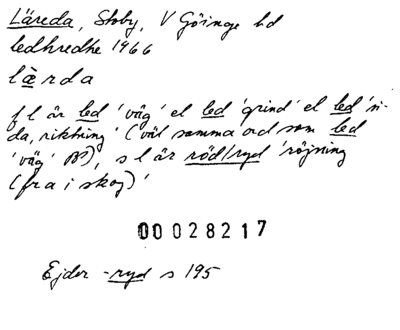 Läreda, Stoby, V Göinge hd
ledhredhe 1966
lærda
f l är led 'väg' el led 'grind' el led 'si-
da, riktning' (väl samma ord som led
'väg' ), s l är röd/ryd 'röjning
(fra i skog)'
00028217
Ejder -ryd s 195